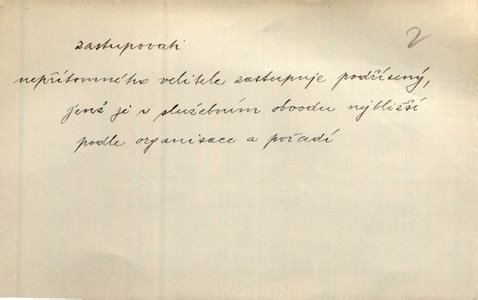 zastupovati
2
nepřítomného velitele zastupuje podřízený,
jenž je v služebním obvodu nejbližší
podle organisace a pořadí